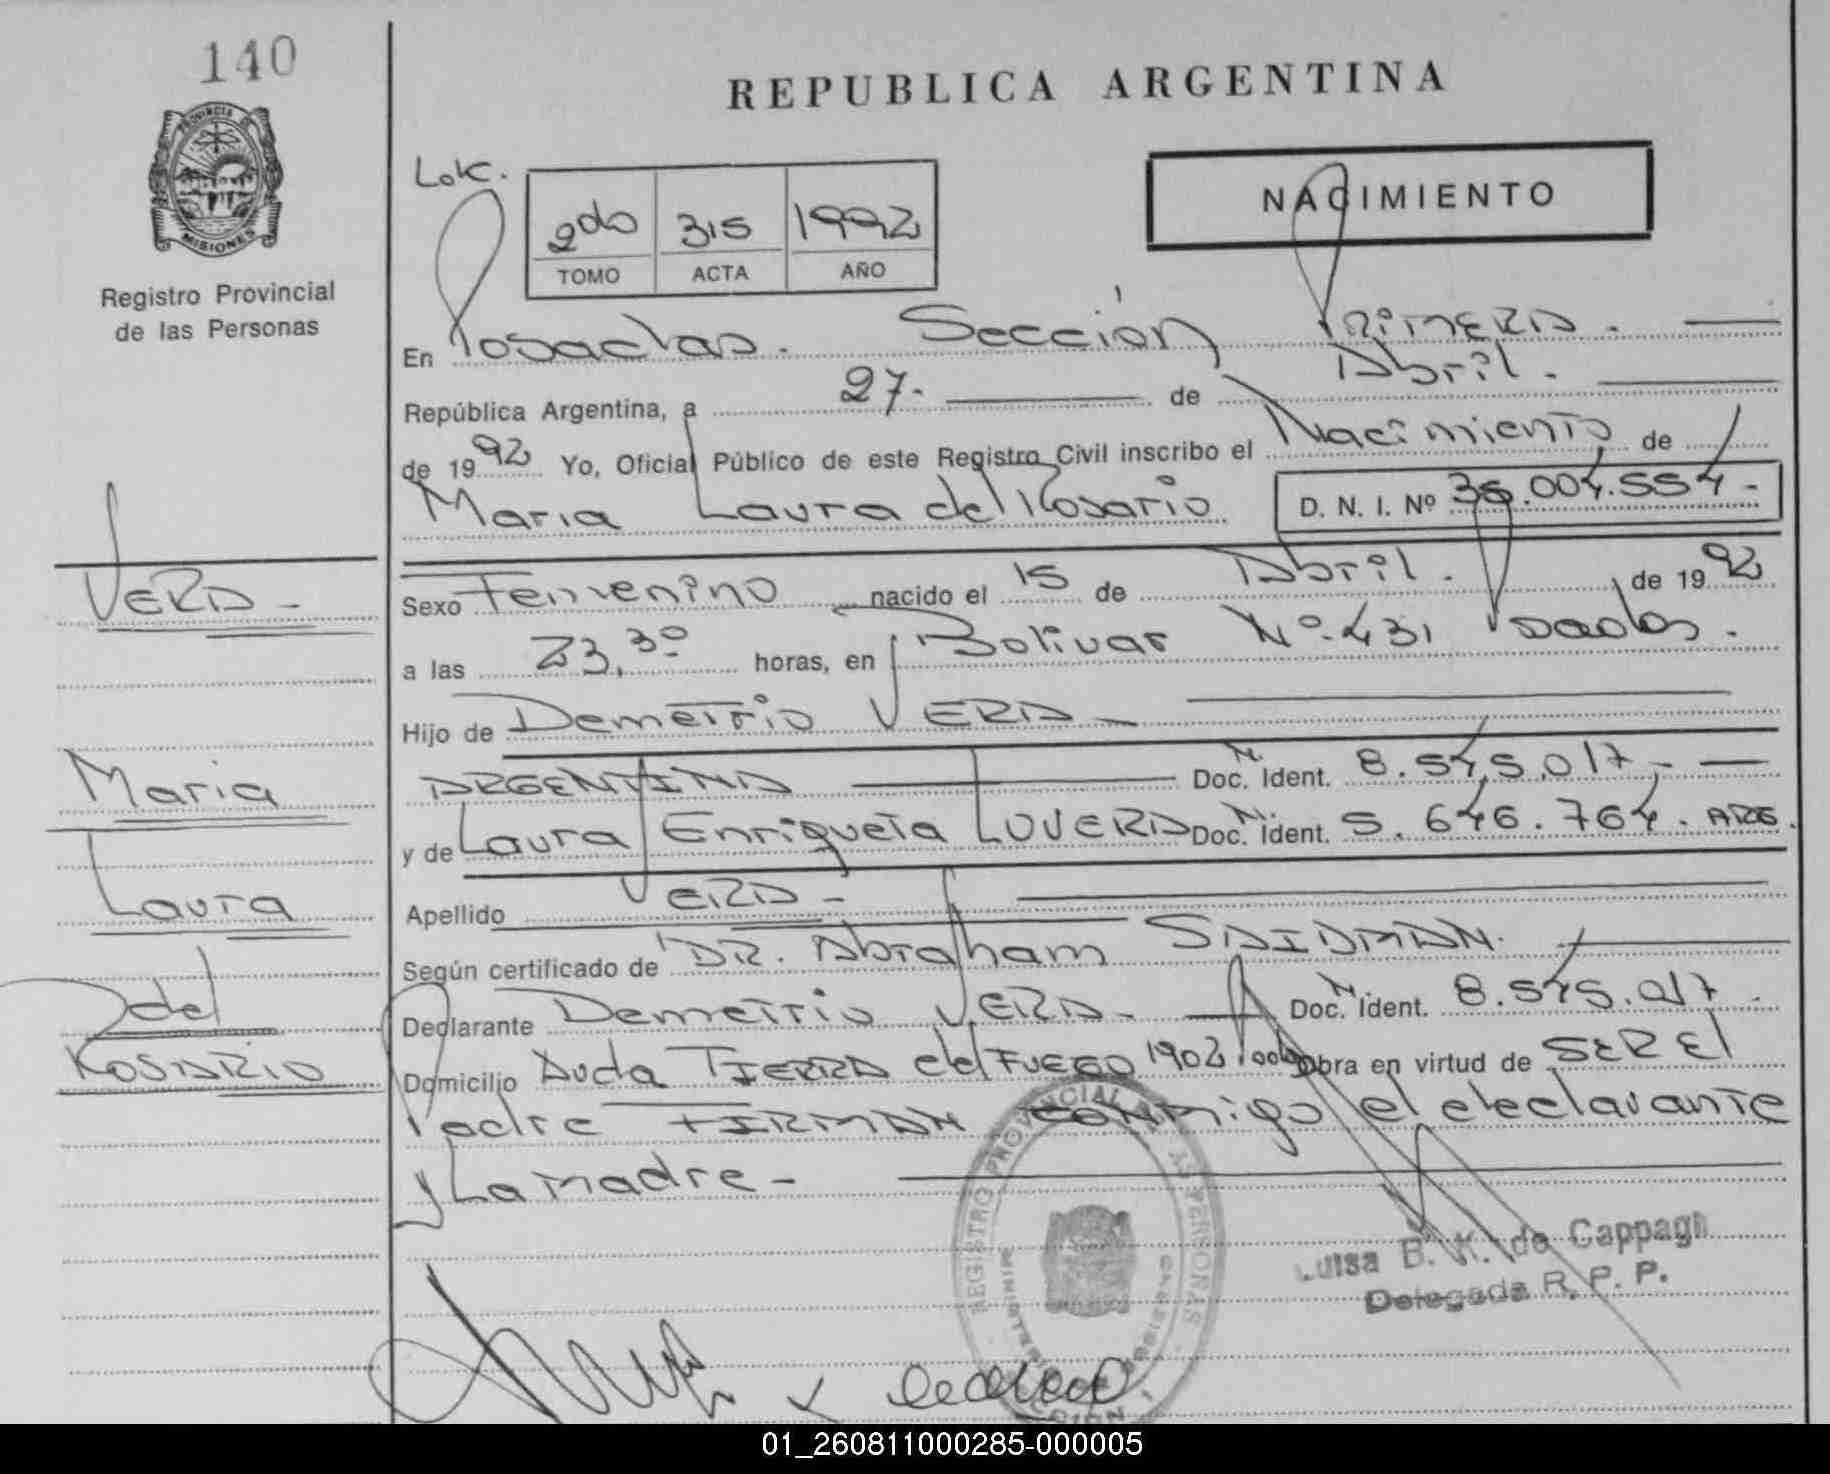 140
PROVINCIA DE
MISIONES
Registro Provincial
de las Personas
REPUBLICA ARGENTINA
NACIMIENTO
2do 315 1992
TOMO ACTA AÑO
En Posadas. Sección Primera.
República Argentina, a 27. de Abril.
de 1992 Yo, Oficial Público de este Registro Civil inscribo el Nacimiento de
Maria Laura del Rosario D. N. I. Nº 36.004.554-
VERA-
Sexo Femenino nacido el 15 de Abril. de 1992
a las 23,30 horas, en Bolivar Nº 431 Posadas.
Hijo de Demetrio VERA-
Maria
ARGENTINA Doc. Ident. 8.545.017-
y de Laura Enriqueta LOVERA Doc. Ident. 5.646.764. ARG.
Laura
Apellido VERA-
Según certificado de DR. Abraham SAIDMAN.
del
Declarante Demetrio VERA- Doc. Ident. 8.545.017.
Rosario
Domicilio Avda TIERRA del FUEGO 1902 Obra en virtud de SER El
Padre FIRMAN conmigo el declarante
y La madre-
REGISTRO PROVINCIAL DE LAS PERSONAS
Luisa B. K. de Cappagli
Delegada R. P. P.
01_260811000285-000005